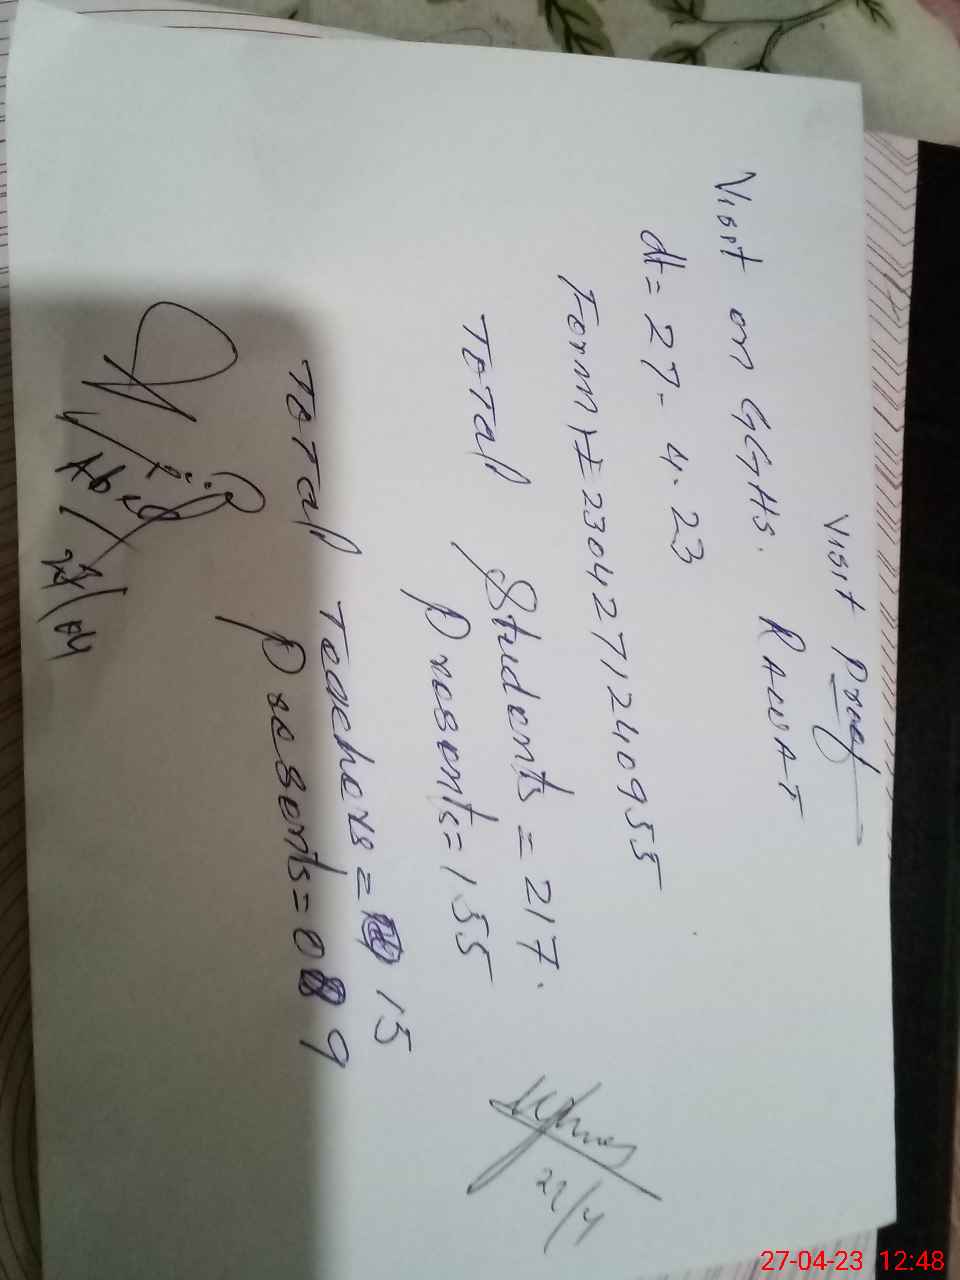 Visit Proof
Visit on GGHS. RAWAT
dt = 27-4.23
Form # 2304271240955
Total Students = 217.
Presents = 155
Total Teachers = 15
Presents = 0 9
Abid
27/04
27/4
27-04-23 12:48